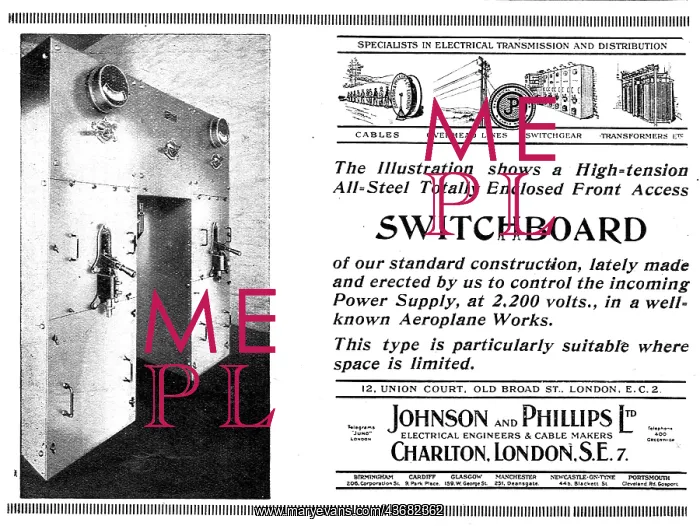 SPECIALISTS IN ELECTRICAL TRANSMISSION AND DISTRIBUTION
JP
CABLES OVERHEAD LINES SWITCHGEAR TRANSFORMERS ETC
The Illustration shows a High=tension
All=Steel Totally Enclosed Front Access
SWITCHBOARD
of our standard construction, lately made
and erected by us to control the incoming
Power Supply, at 2,200 volts., in a well=
known Aeroplane Works.
This type is particularly suitable where
space is limited.
12, UNION COURT, OLD BROAD ST., LONDON, E.C.2.
JOHNSON AND PHILLIPS LTD
Telegrams
"JUNO"
LONDON
ELECTRICAL ENGINEERS & CABLE MAKERS
Telephone
400
GREENWICH
CHARLTON, LONDON, S.E. 7.
BIRMINGHAM CARDIFF GLASGOW MANCHESTER NEWCASTLE-ON-TYNE PORTSMOUTH
206, Corporation St. 9, Park Place. 159, W. George St. 251, Deansgate. 44b, Blackett St. Cleveland Rd. Gosport
ME
PL
ME
PL
www.maryevans.com/43682862